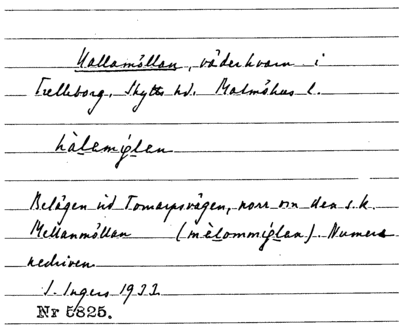 Hallamöllan, väderkvarn i
Trelleborg. Skytts hd. Malmöhus l.
hàlamíɡlan
Belägen vid Tomarpsvägen, norr om den s.k.
Mellanmöllan (mèlommíɡlan). Numera
nedriven
I. Ingers 1933
Nr 5825.